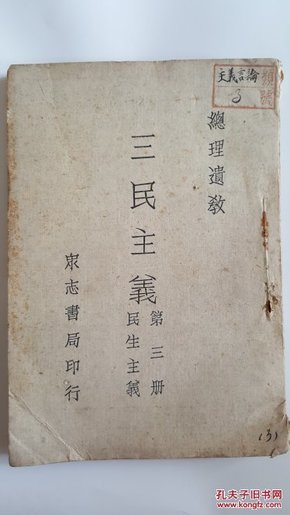 主義言論
類號
3
總理遺教
三民主義
第三册
民生主義
眾志書局印行
(3)
孔夫子旧书网